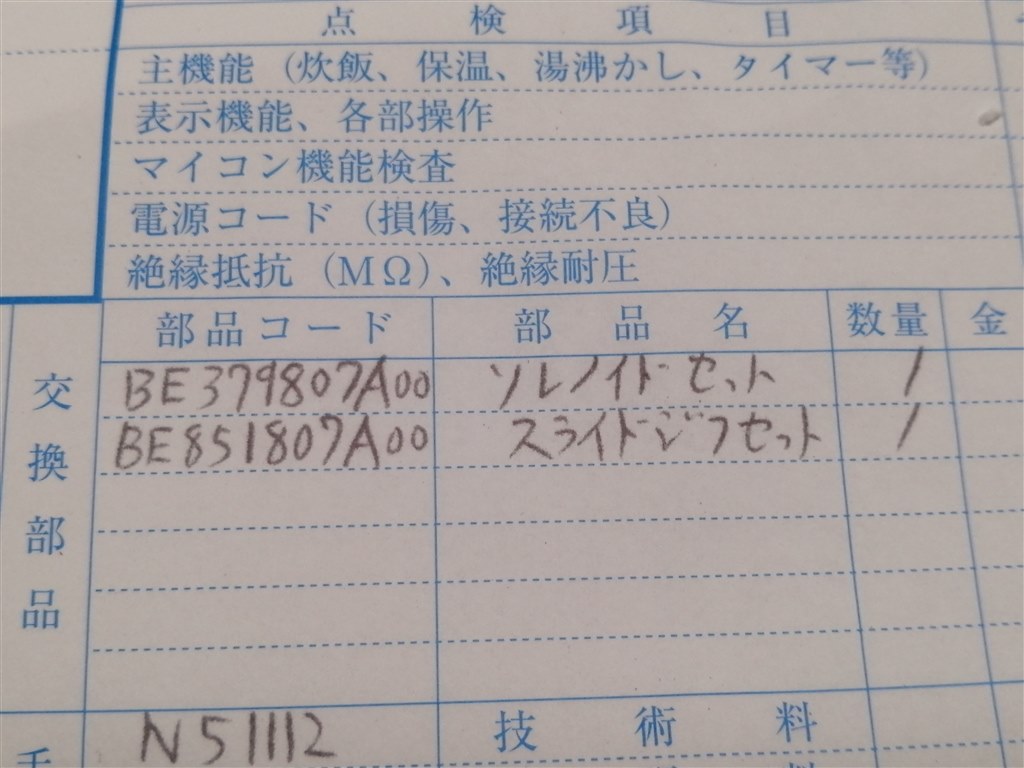 点検項目
主機能（炊飯、保温、湯沸かし、タイマー等）
表示機能、各部操作
マイコン機能検査
電源コード（損傷、接続不良）
絶縁抵抗（MΩ）、絶縁耐圧
交換部品
部品コード 部品名 数量 金
BE379807A00 ソレノイドセット 1
BE851807A00 スライドジクセット 1
N51112 技術料